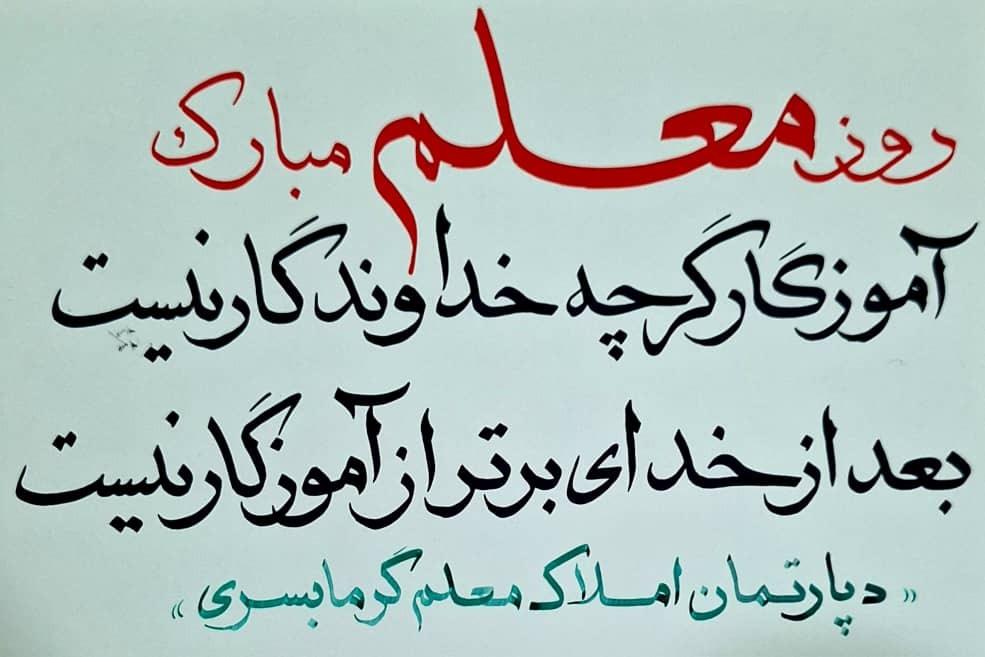 روز معلم مبارک
آموزگار گرچه خداوندگار نیست
بعد از خدای برتر از آموزگار نیست
« دپارتمان املاک معلم گرمابسری »